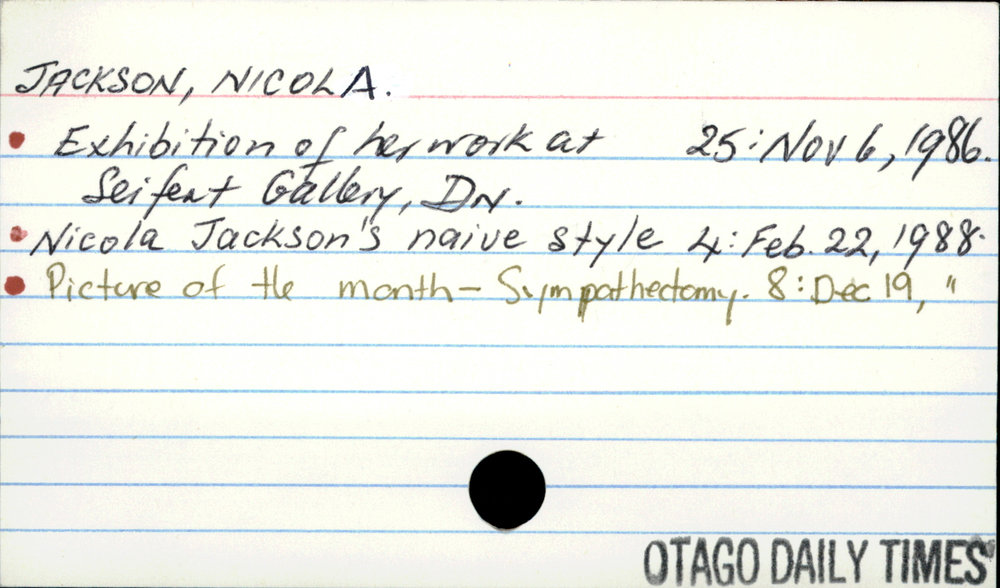 JACKSON, NICOLA.
• Exhibition of her work at 25: Nov 6, 1986.
Seifert Gallery, DN.
• Nicola Jackson's naive style 4: Feb. 22, 1988.
• Picture of the month - Sympathectomy. 8: Dec 19, "
OTAGO DAILY TIMES